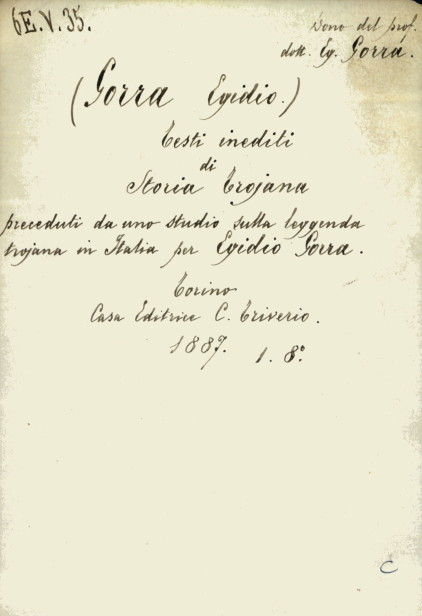 6E.V.35.
Dono del prof.
dott. Eg. Gorra.
(Gorra Egidio.)
Testi inediti
di
Storia Trojana
preceduti da uno studio sulla leggenda
trojana in Italia per Egidio Gorra.
Torino
Casa Editrice C. Triverio.
1887. 1. 8.º
C